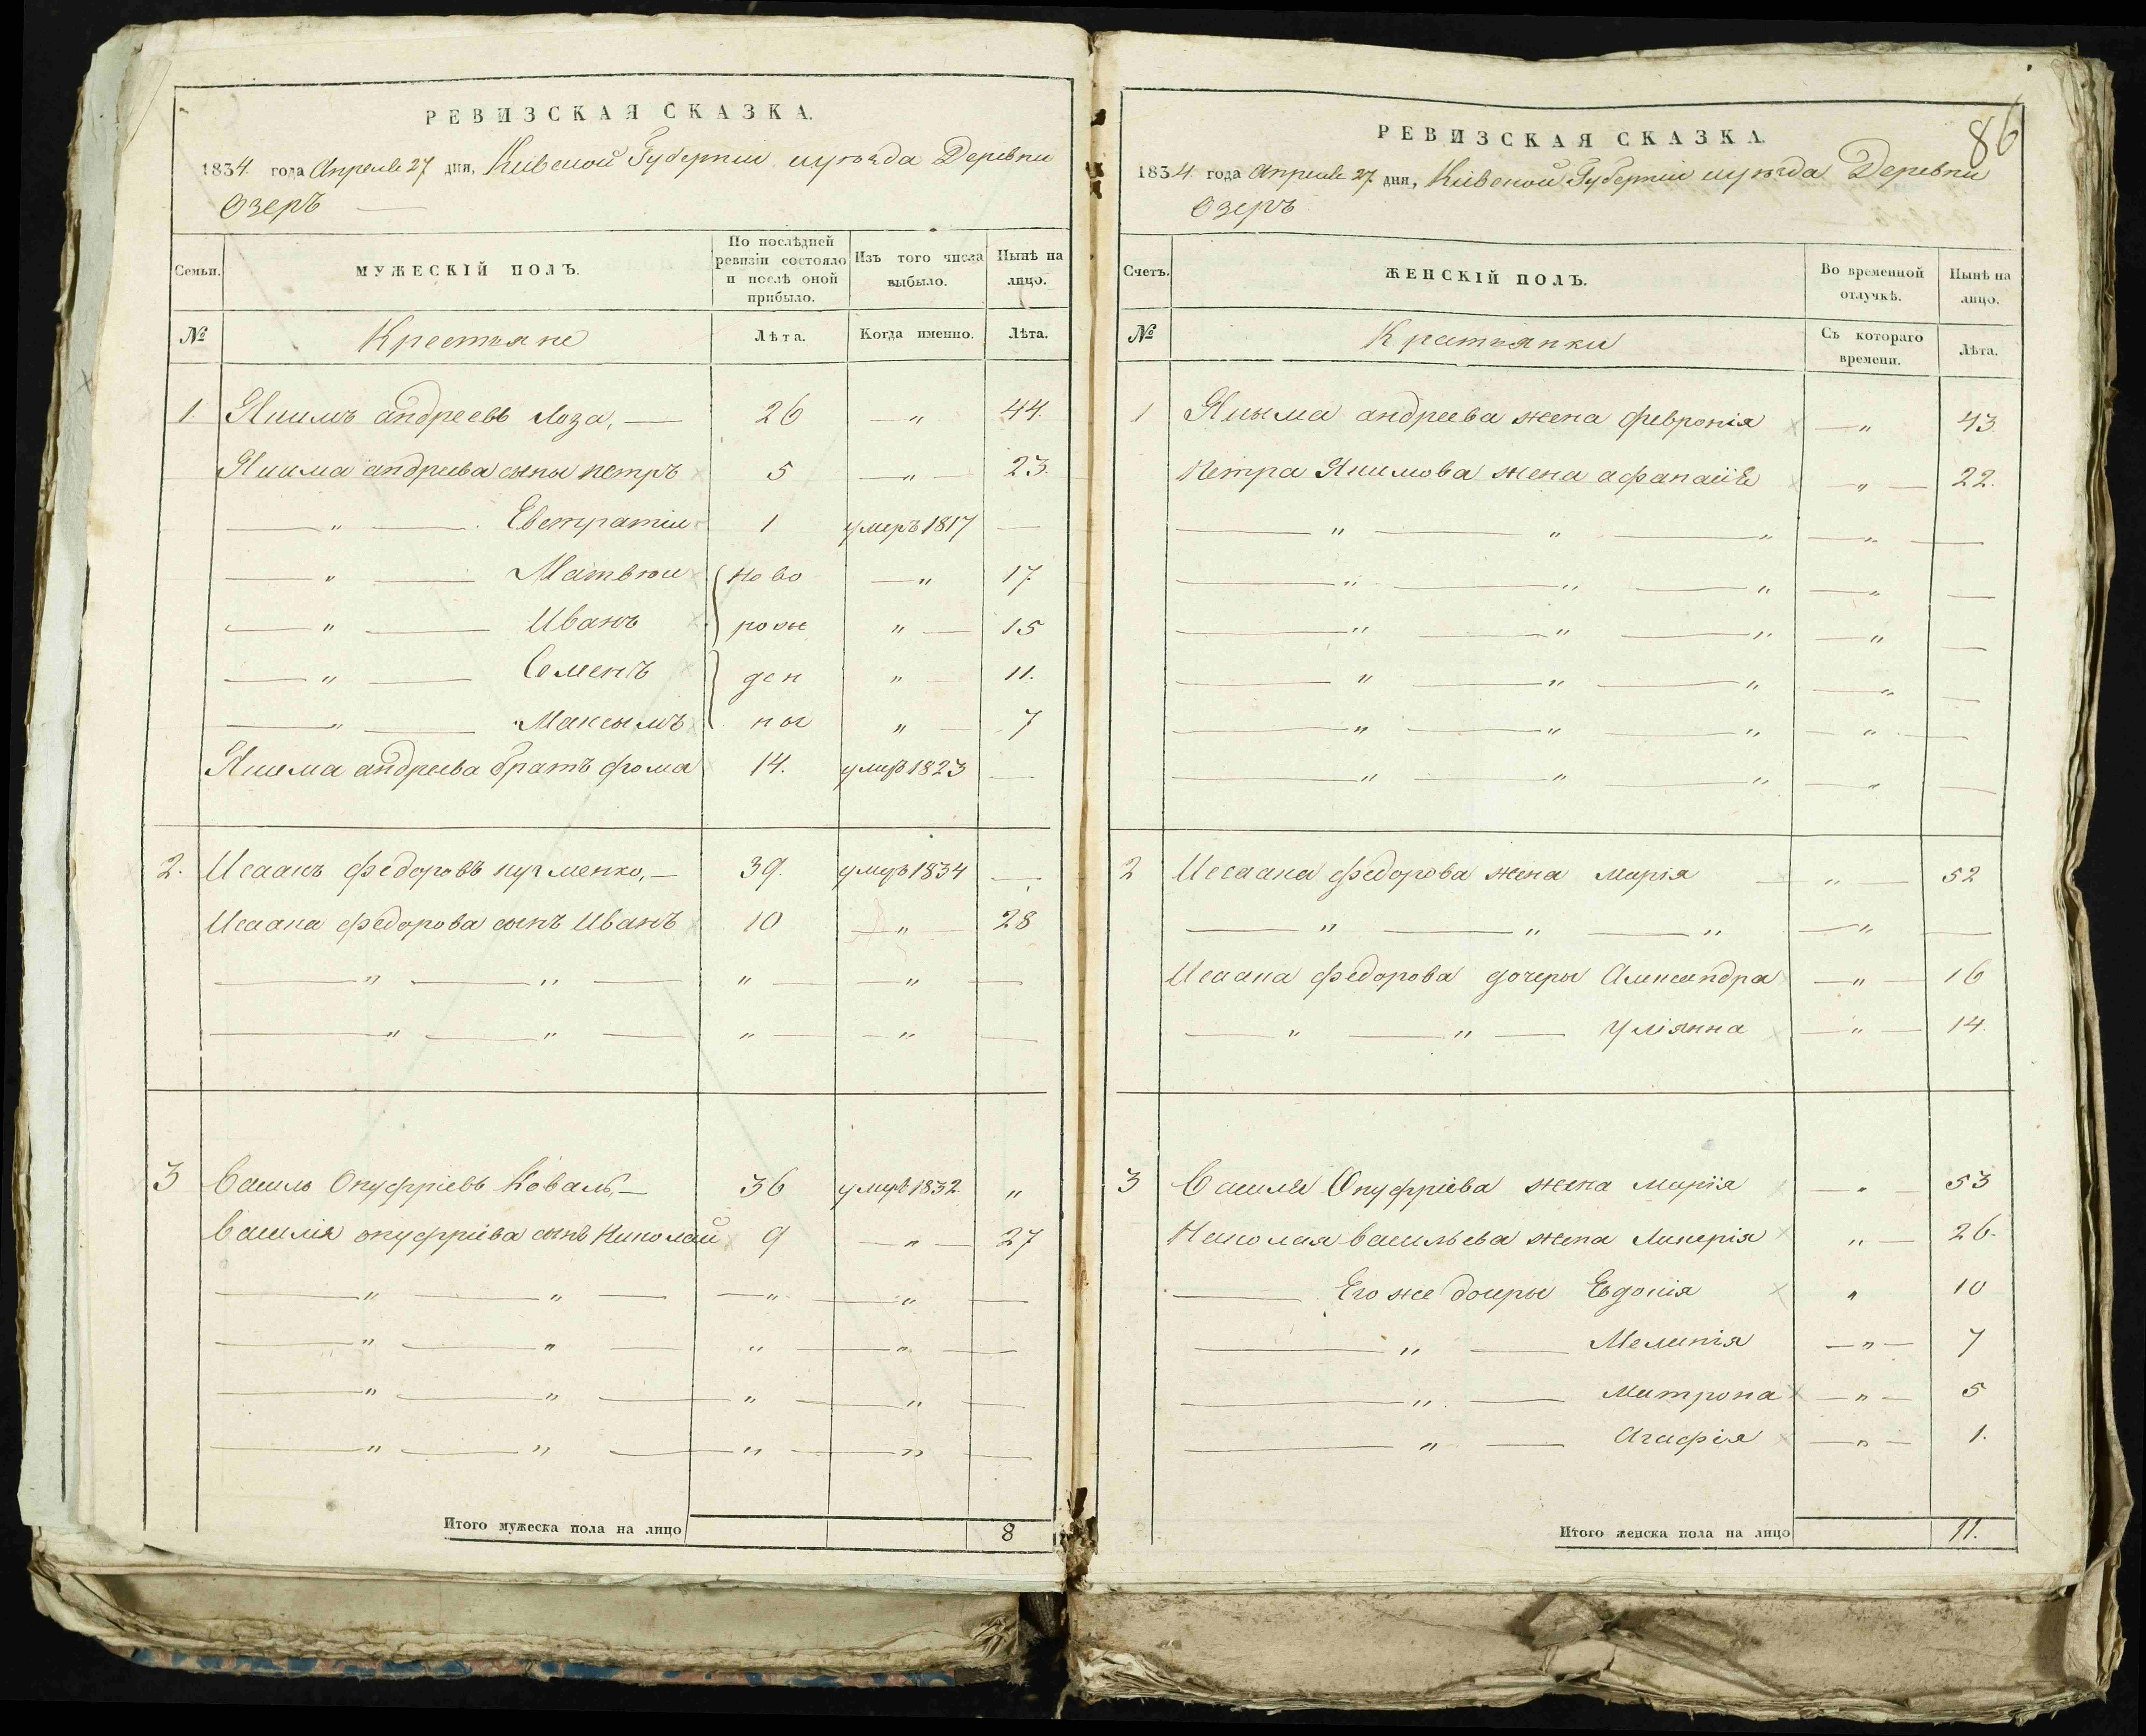 РЕВИЗСКАЯ СКАЗКА.
1834 года Апреля 27 дня, Кіевской Губерніи иуѣзда Деревни
Озеръ
Семьи.
МУЖЕСКІЙ ПОЛЪ.
По послѣдней ревизіи состояло и послѣ оной прибыло.
Изъ того числа выбыло.
Нынѣ на лицо.
№ Крестьяне Лѣта. Когда именно. Лѣта.
1. Якимъ андреевъ Лоза, — 26 — „ 44.
Якима андреева сыны петръ 5 — „ — 23.
— „ — Евстратіи 1 умеръ 1817 —
— „ — Матвѣи ново — „ 17
— „ — Иванъ рож „ — 15
— „ — Семенъ ден „ — 11.
— „ — Максымъ ны „ — 7
Якима андреева братъ фома 14. умеръ 1823 —
2. Исаакъ федоровъ кузменко, — 39. умеръ 1834 —
Исаака федорова сынъ Иванъ 10 — „ — 28
— „ — „ — „ — — „ —
— „ — „ — „ — — „ —
3 Василь Онуфріевъ Коваль, — 36 умеръ 1832. „
Василія онуфріева сынъ Николай 9 — „ — 27
— „ — „ — — „ — „ —
— „ — „ — „ — „ —
— „ — „ — „ — „ —
— „ — „ — „ — „ —
Итого мужеска пола на лицо 8
86
РЕВИЗСКАЯ СКАЗКА.
1834 года Апреля 27 дня, Кіевской Губерніи иуѣзда Деревни
Озеръ
Счетъ.
ЖЕНСКІЙ ПОЛЪ.
Во временной отлучкѣ.
Нынѣ на лицо.
№ Крестьянки Съ котораго времени. Лѣта.
1 Якыма андреева жена февронія — „ 43
Петра Якимова жена — „ — 22.
— „ — „ — „ — „ —
— „ — „ — „ — „ —
— „ — „ — „ — „ —
— „ — „ — „ — „ —
— „ — „ — „ — „ —
— „ — „ — „ — „ —
2 Исаака федорова жена марія — „ — 52
— „ — „ — „ — „ —
Исаака федорова дочеры Александра — „ — 16
— „ — „ — Уліянна — „ — 14.
3 Василя Онуфріева жена марія — „ — 53
Николая васильева жена Ликерія „ — 26.
— Его же дочеры Евдокія „ 10
— „ — Меланія — „ — 7
— „ — Матрона — „ — 5
— „ — Агафія — „ — 1.
Итого женска пола на лицо 11.